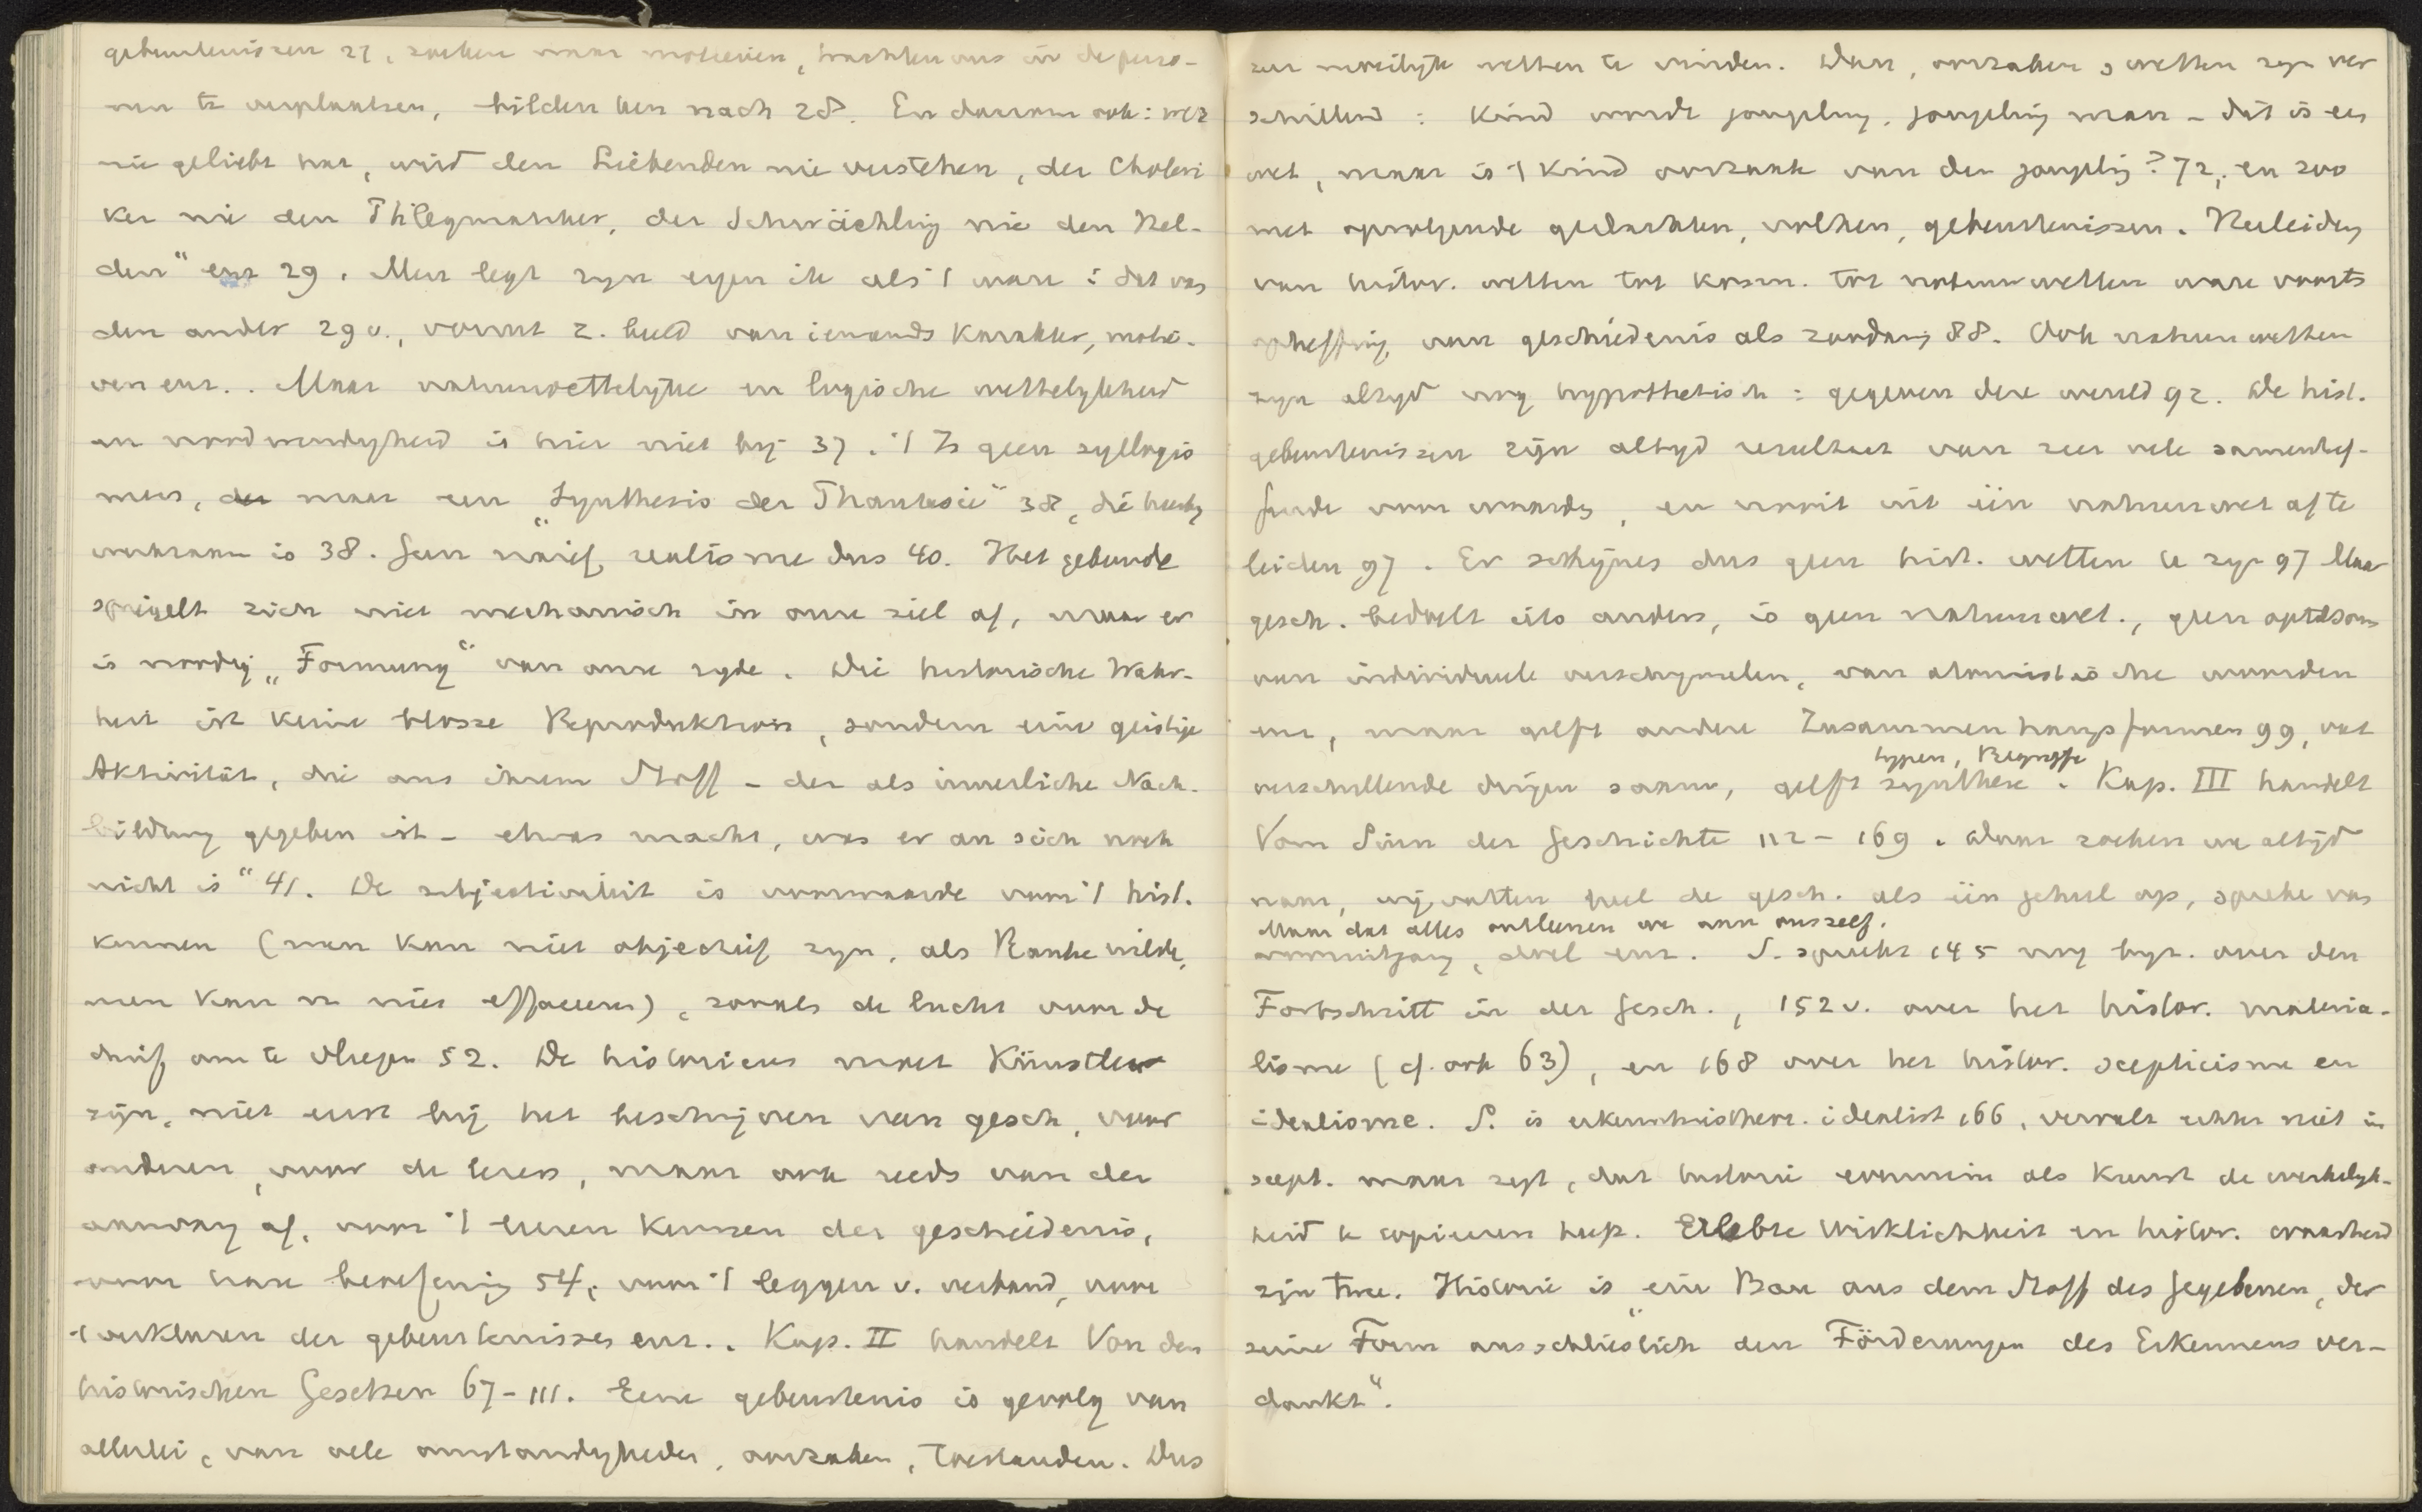 gebeurtenissen 27, zoeken naar motieven, trachten ons in de perso-
nen te verplaatsen, bilden hen nach 28. En daarom ook: wer
nie geliebt hat, wird den Liebenden nie verstehen, der Choleri
ker nie den Phlegmatiker, der Schwächling nie den Hel-
den" enz 29. Men legt zyn eigen ik als 't ware in dat van
den ander 29 v., vormt z. beeld van iemands karakter, motie-
ven enz.. Maar natuurwettelyke en logische wettelykheid
en noodwendigheid is hier niet bij 37. 't Is geen syllogis
mus, maar een „Synthesis der Phantasie" 38, die hierbij
werkzaam is 38. Geen naief realisme dus 40. Het gebeurde
spiegelt zich niet mechanisch in onze ziel af, maar er
is noodig „Formung" van onze zyde. Die historische Wahr-
heit ist keine blosse Reproduktion, sondern eine geistige
Aktivität, die aus ihrem Stoff - der als innerliche Nach-
bildung gegeben ist - etwas macht, was er an sich noch
nicht is" 41. De subjectiviteit is voorwaarde voor 't hist.
kennen (men kan niet objectief zyn, als Ranke wilde,
men kan zich niet effaceeren), zooals de lucht voor de
duif om te vliegen 52. De historicus moet Künstler
zijn, niet eerst bij het beschrijven van gesch, voor
anderen, voor de lezers, maar ook reeds van den
aanvang af, voor 't leeren kennen der geschiedenis,
voor hare beoefening 54, voor 't leggen v. verband, voor
't verklaren der gebeurtenissen enz.. Kap. II handelt Von den
historischen Gesetzen 67-111. Eene gebeurtenis is gevolg van
allerlei, van vele omstandigheden, oorzaken, toestanden. Dus
zeer moeilijk wetten te vinden. Dan, oorzaken & wetten zyn ver
schillend: Kind wordt jongeling, jongeling man - dat is een
wet, maar is 't kind oorzaak van den jongeling? 72, en zoo
met opvolgende gedachten, volken, gebeurtenissen. Herleiding
van histor. wetten tot kosm. tot natuurwetten ware voorts
opheffing van geschiedenis als zoodanig 88. Ook natuurwetten
zyn altyd nog hypothetisch: gegeven deze wereld 92. De hist.
gebeurtenissen zijn altyd resultaat van zeer vele samentref-
fende voorwaarden, en nooit uit één natuurwet af te
leiden 97. Er schijnen dus geen hist. wetten te zyn 97 Maar
gesch. bedoelt iets anders, is geen natuurwet., geen optelsom
van individueele verschynselen, van atomistische waarden
enz, maar geeft andere Zusammenhangsformen 99, vat
verschillende dingen saam, geeft synthese. Kap. III handelt
typen, Begriffe
Vom Sinn der Geschichte 112-169. Daar zoeken we altijd
naar, wij vatten heel de gesch. als één geheel op, spreken van
Maar dat alles ontleenen we aan onszelf.
vooruitgang, doel enz. S. spreekt 145 nog byz. over den
Fortschritt in der Gesch., 152 v. over het histor. materia-
lisme (cf. ook 63), en 168 over het histor. scepticisme en
idealisme. S. is erkenntnistheor. idealist 166, vervalt echter niet in
scept. maar zegt, dat historie evenmin als kunst de werkelyk-
heid te copieeren heeft. Erlebte Wirklichkeit en histor. waarheid
zijn twee. Historie is „ein Bau aus dem Stoff des Gegebenen, der
seine Form ausschlieslich den Förderungen des Erkennens ver-
dankt".